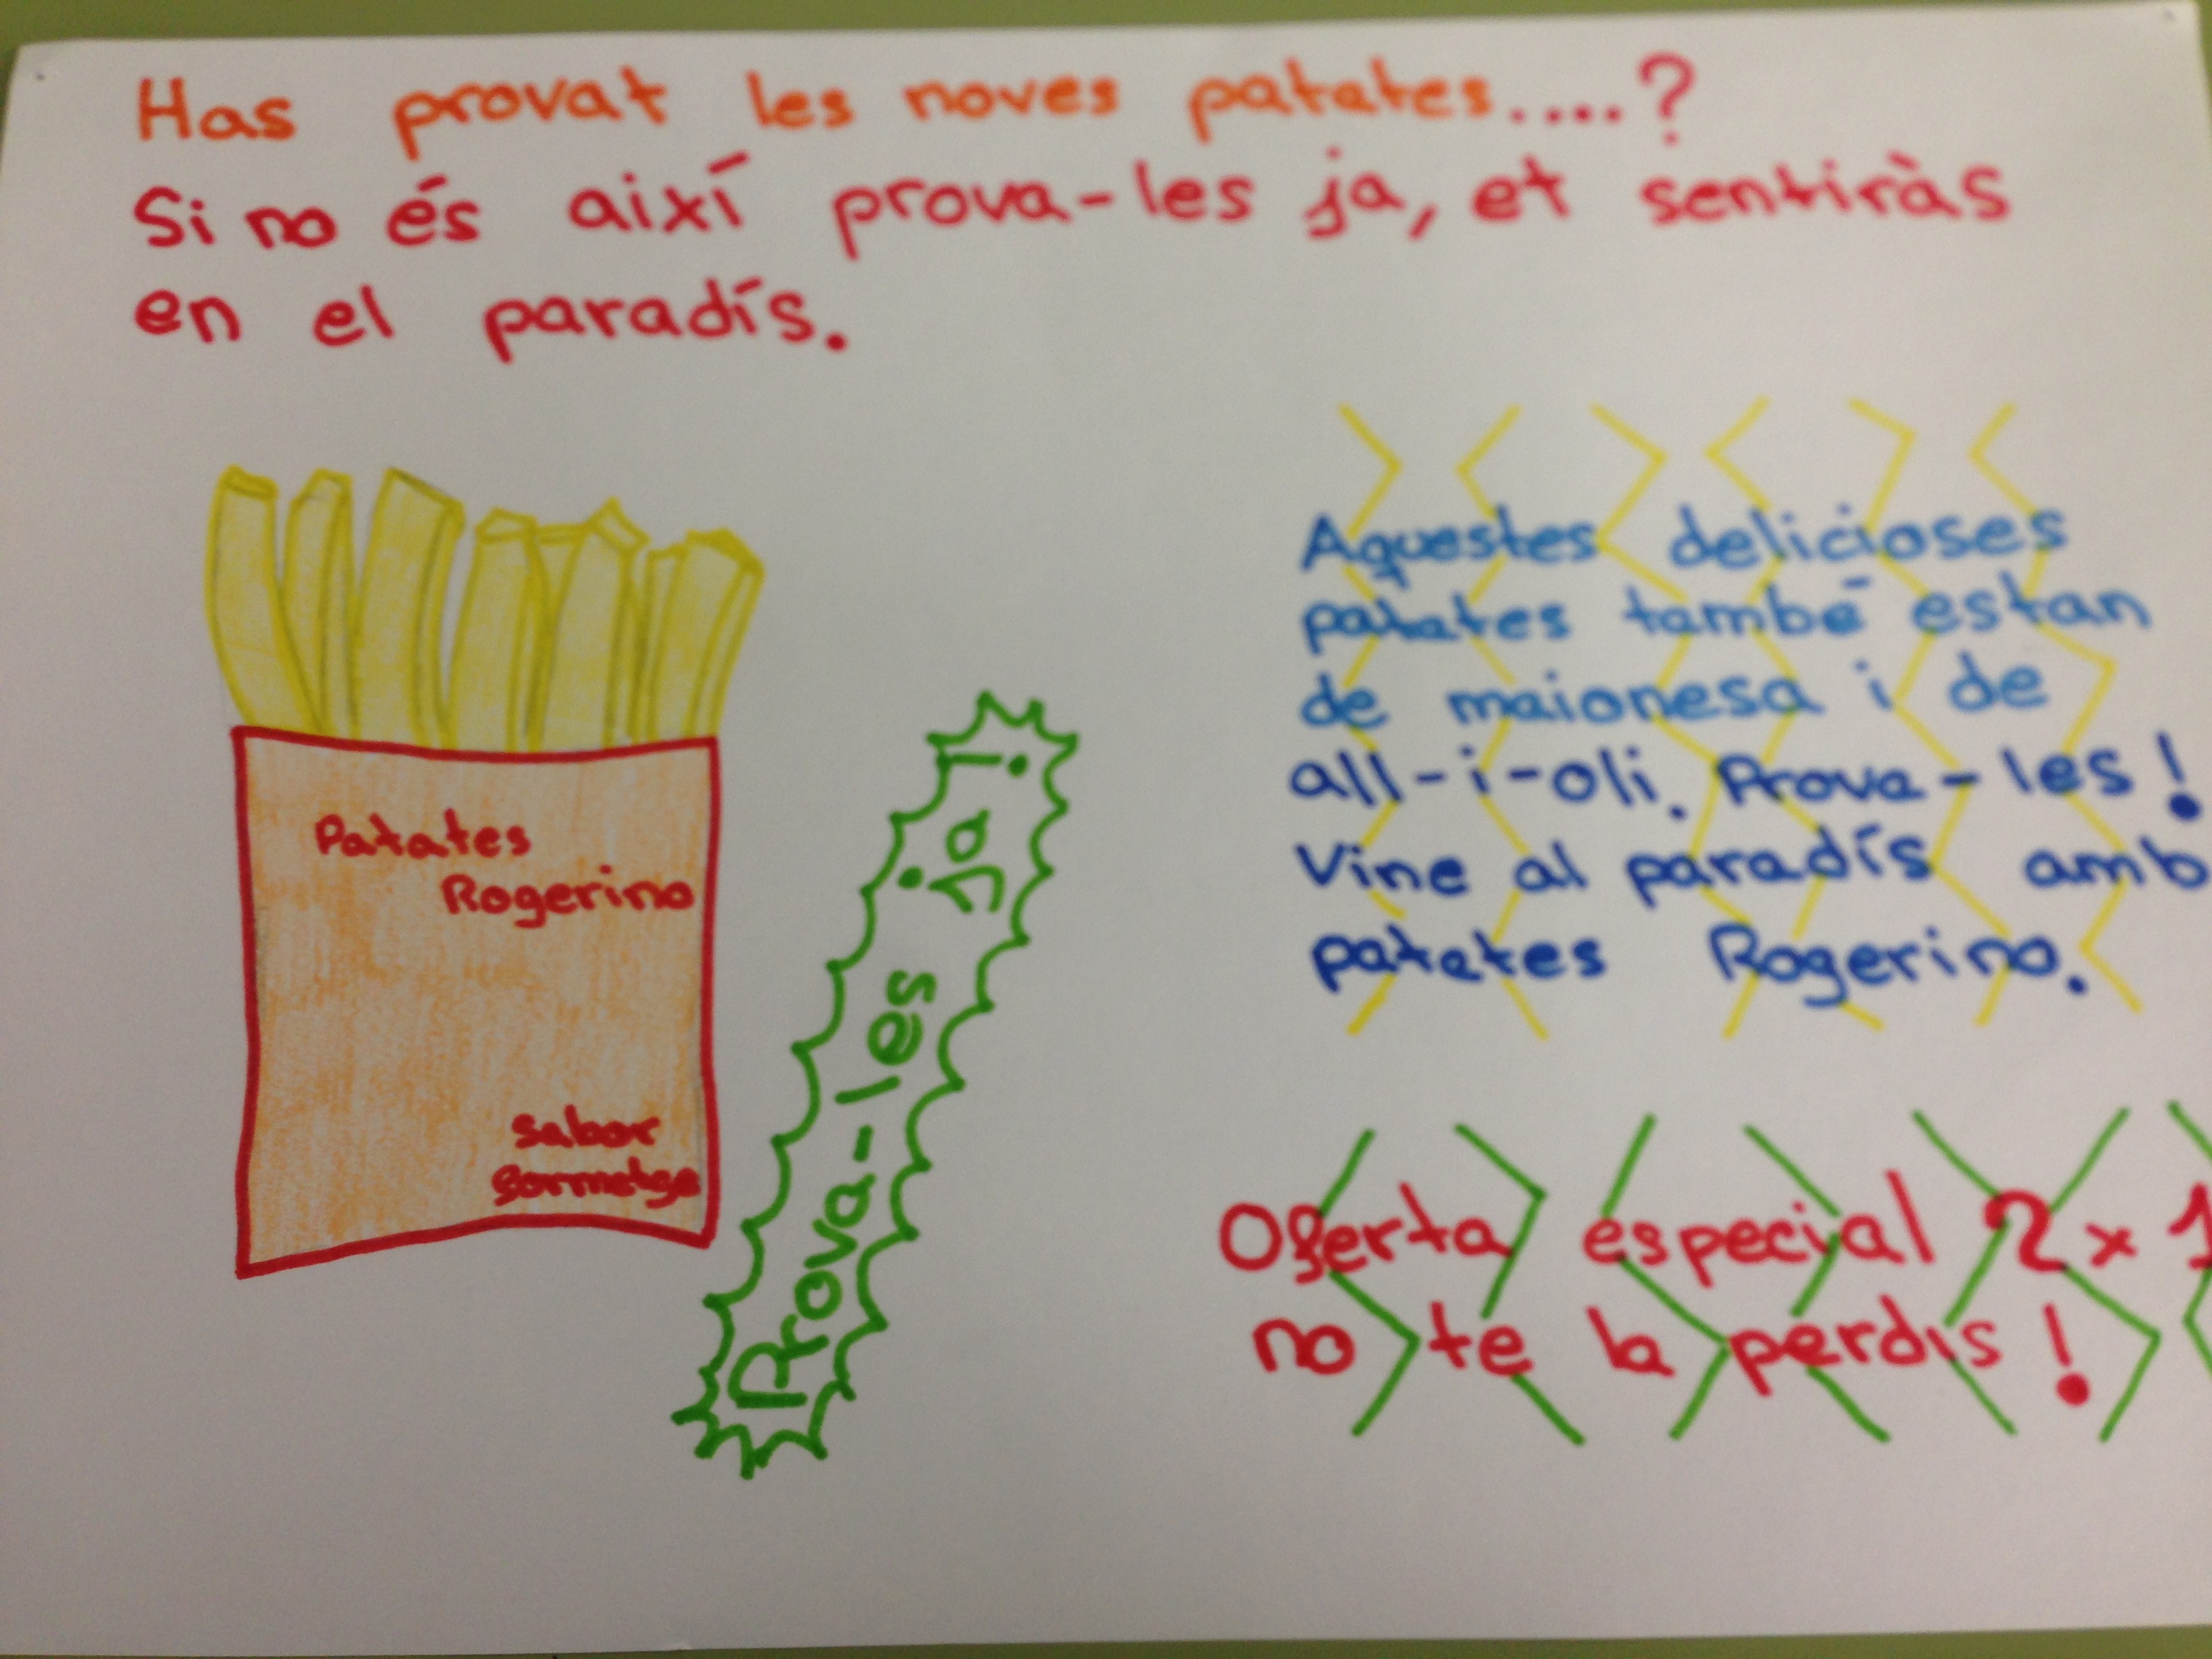 Has provat les noves patates....?
Si no és així prova-les ja, et sentiràs
en el paradís.
Patates
Rogerino
Sabor
gormetge
Prova-les ja!
Aquestes delicioses
patates també estan
de maionesa i de
all-i-oli. Prova-les!
Vine al paradís amb
patates Rogerino.
Oferta especial 2x1
no te la perdis!